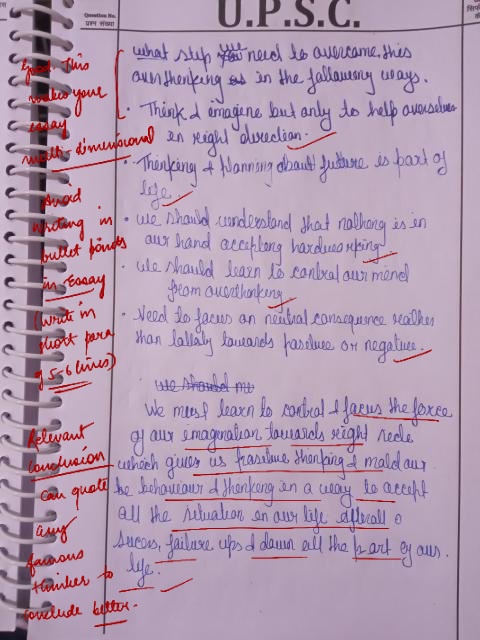 Question No.
प्रश्न संख्या
U.P.S.C.
what step need to overcome this
overthenking is in the following ways.
• Think & imagene but only to help overselves
en right direction.
• Thenking & planning about future is part of
life
• we should understand that nothing is in
our hand accepteng hardworking
• we should learn to control our mend
from overthenking
• Need to focus on neutral consequence reather
than totally towards positive or negative.
we should
We must learn to control & focus the force
of our imagination towards right
which gives us positive thenking & mold our
behaviour & thenking en a way to accept
all the situation en our life afterall
success, failure ups & down all the part of our
life.
Good. This
makes your
essay
multi-dimensional
Avoid
writing in
bullet points
in Essay
(write in
short para
of 5-6 lines)
Relevant
conclusion
can quote
any
famous
thinker to
conclude better.